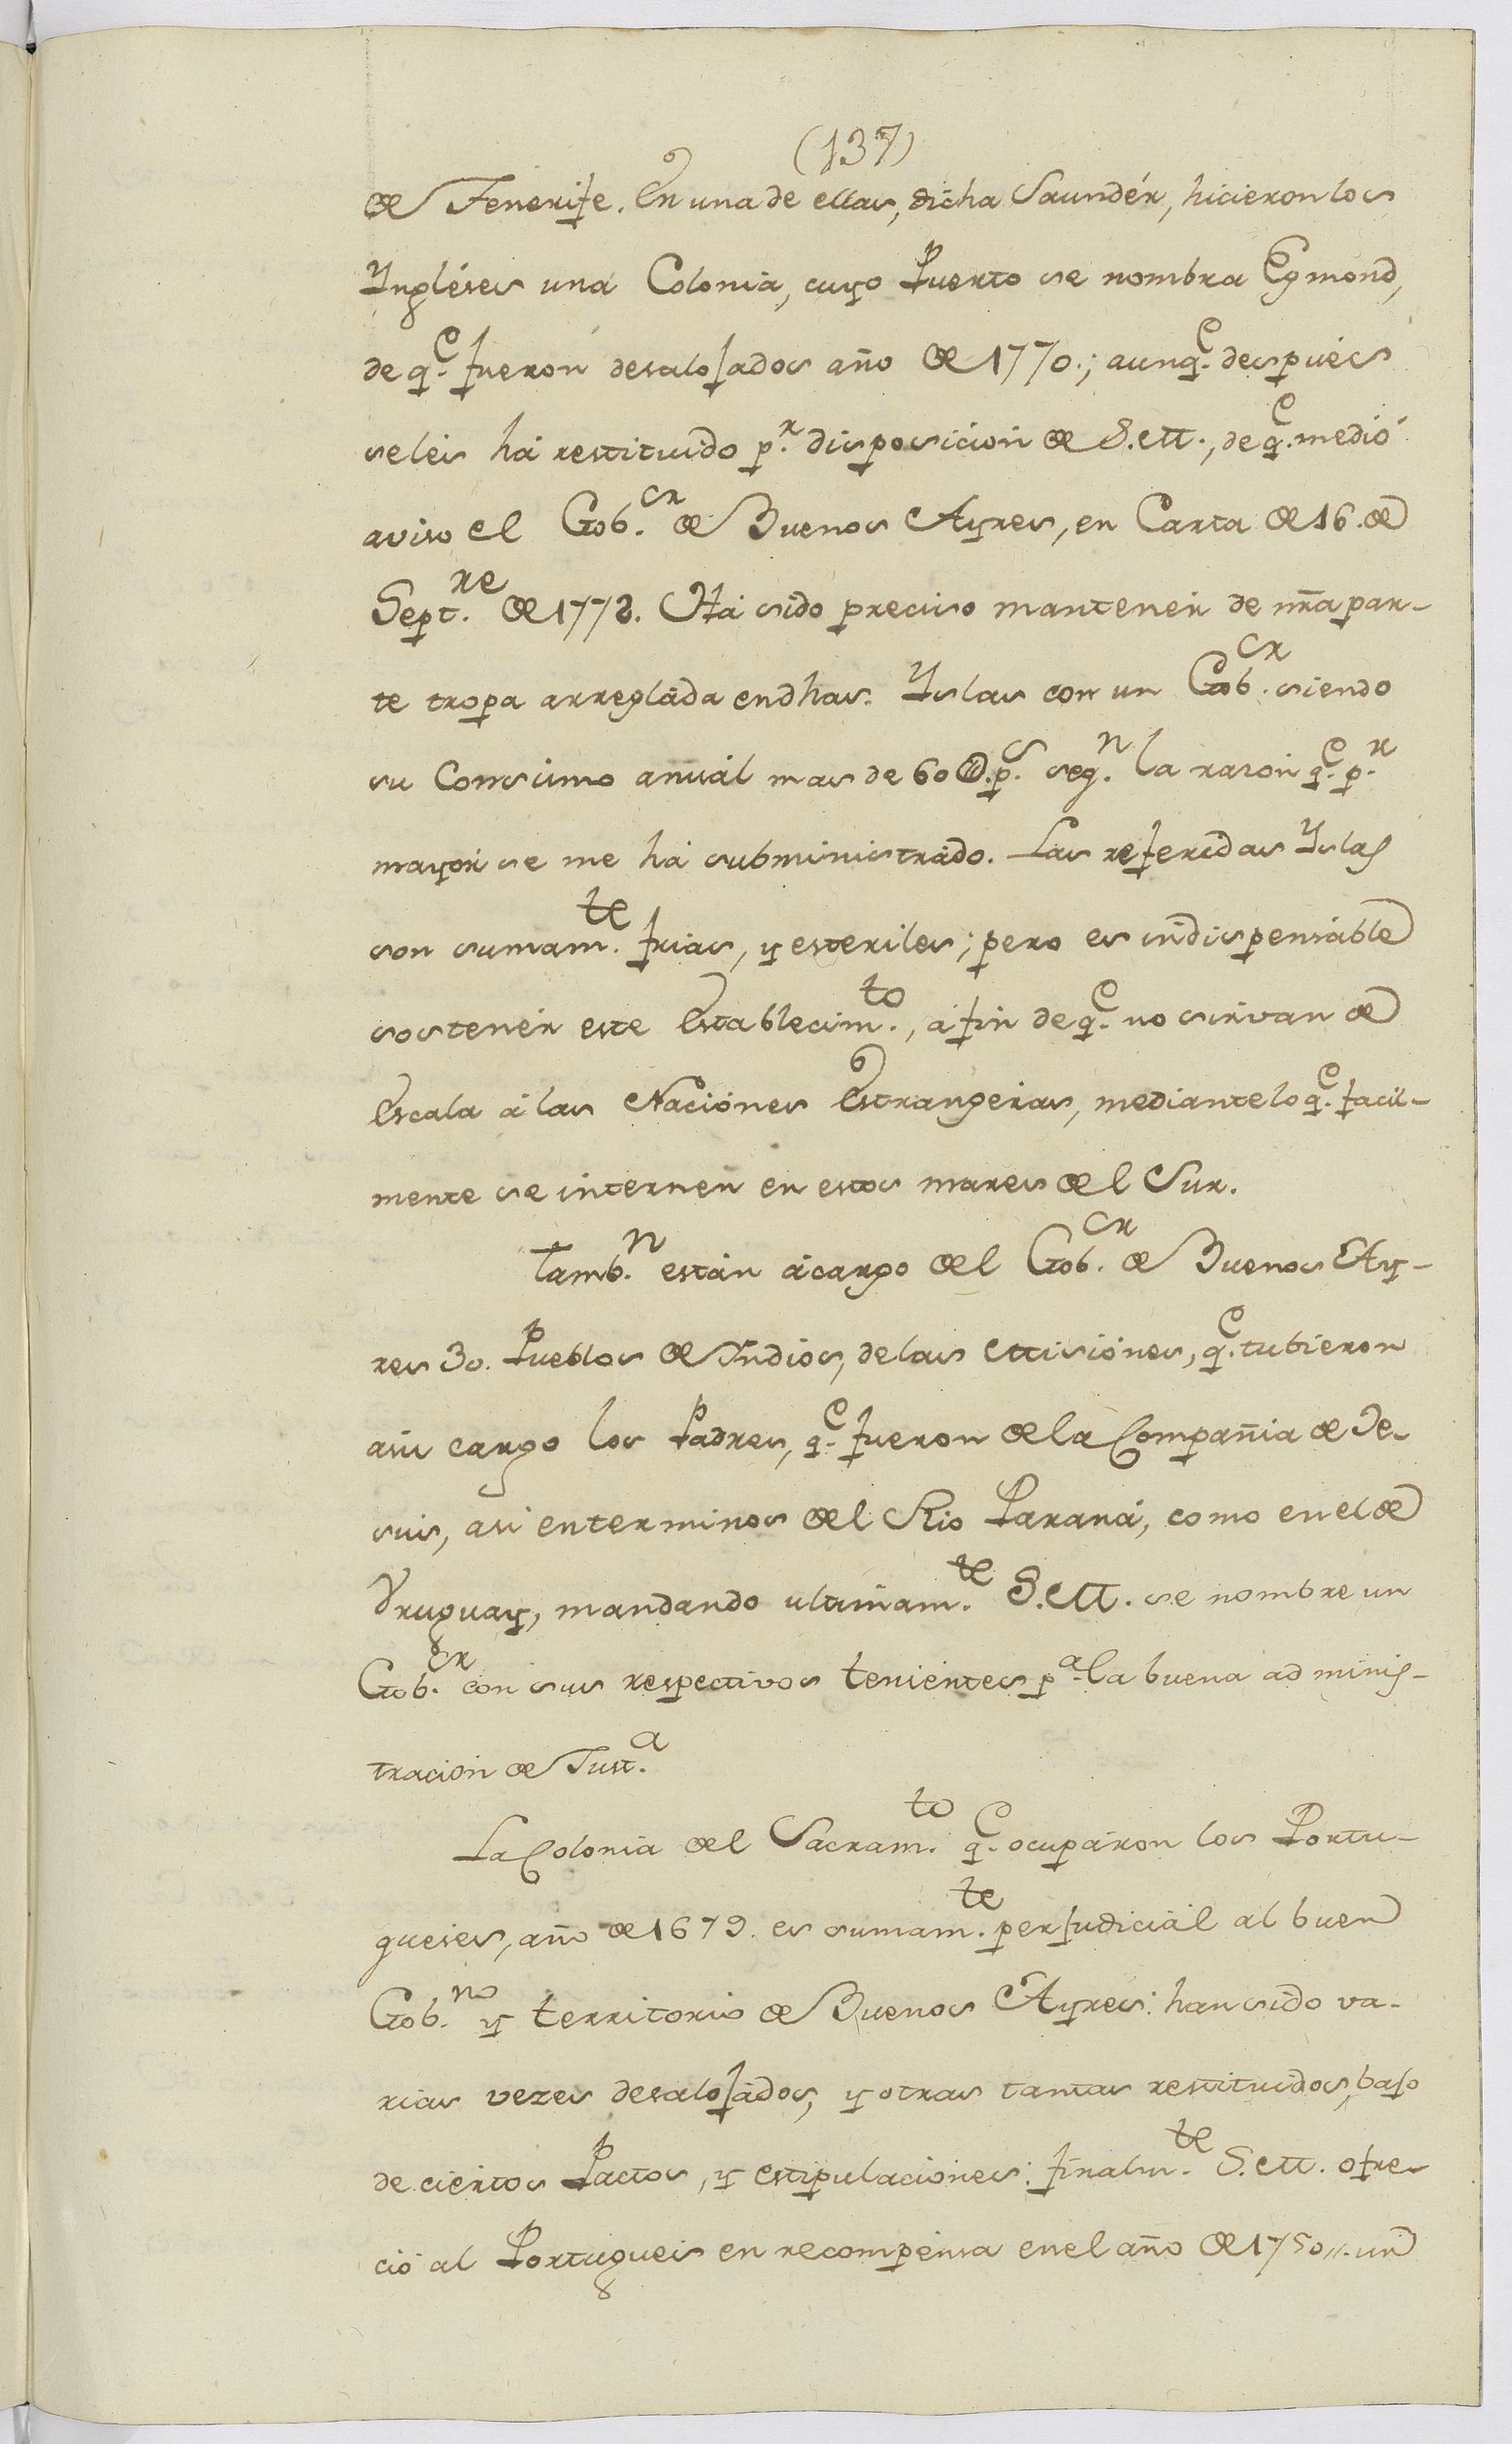 (137)
de Tenerife. En una de ellas, dicha Saundér, hicieron los
Yngléses una Colonia, cuyo Puerto se nombra Egmond,
de q.e fueron desalojados año de 1770.; aunq.e despues
se les há restituido p.r disposicion de S.M., de q.e me dió
aviso el Gob.or de Buenos Ayres, en Carta de 16. de
Sept.re de 1772. Há sido preciso mantener de nr̃a par-
te tropa arreglada en dhas. Yslas con un Gob.or siendo
su Consumo anuál mas de 60 @. p.s seg.n la razon q.e p.r
mayor se me há subministrado. Las referidas Yslas
son sumam.te frias, y esteriles; pero es indispensable
sostenér este Establecim.to, á fin de q.e no sirvan de
Escala á las Naciónes Estrangeras, mediante lo q.e facil-
mente se internen en estos mares del Sur.
Tamb.n están á cargo del Gob.or de Buenos Ay-
res 30. Pueblos de Yndios, de las Misiónes, q.e tubieron
asu cargo los Padres, q.e fueron de la Compañia de Je-
sus, asi en terminos del Rio Paraná, como en el de
Vruguay, mandando ultimam.te S.M. se nombre un
Gob.or con sus respectivos tenientes p.a la buena adminis-
tracion de Just.a
La Colonia del Sacram.to q.e ocuparon los Portu-
gueses, año de 1679. es sumam.te perjudiciál al buen
Gob.no y territorio de Buenos Ayres: han sido va-
rias vezes desalojádos, y otras tantas restituidos, bajo
de ciertos Pactos, y estipulaciones: finalm.te S.M. ofre-
ció al Portugues en recompensa en el año de 1750,,. un